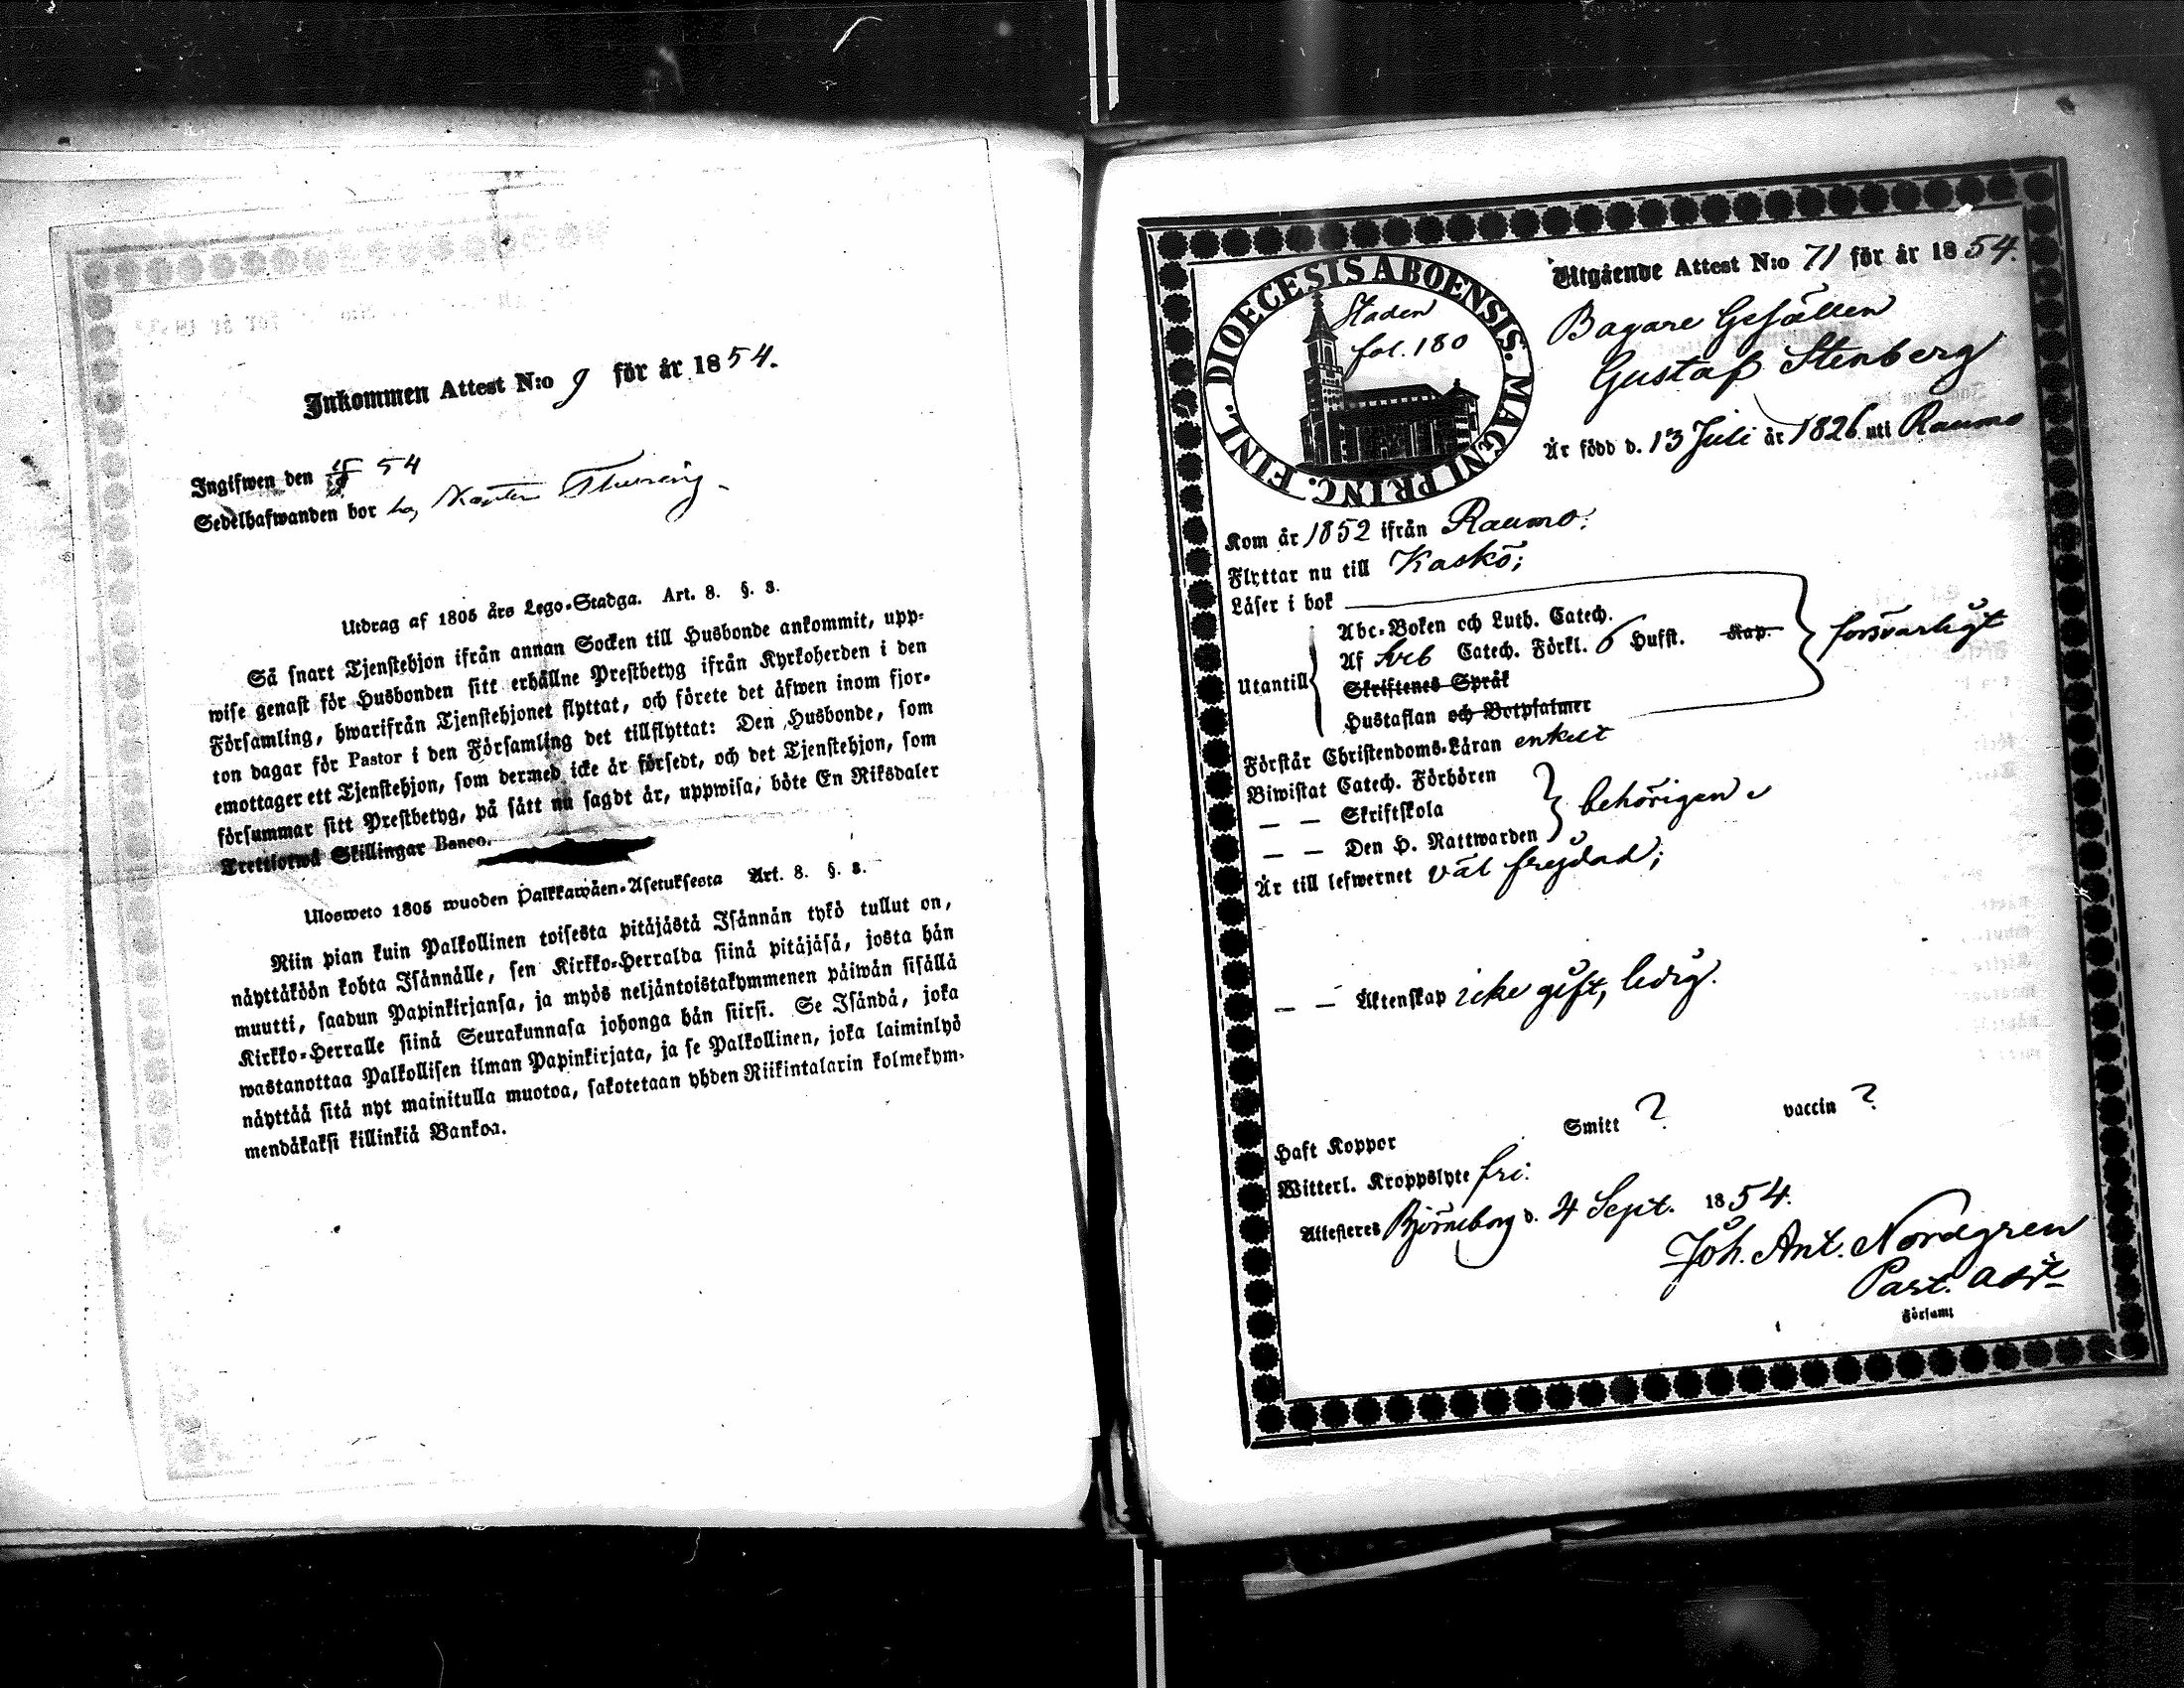 Inkommen Attest N:o 9 för år 1854.
Ingifwen den 54
Sedelhafwanden bor hos
Utdrag af 1805 års Lego-Stadga. Art. 8. §. 3.
Så snart Tjenstehjon ifrån annan Socken till Husbonde ankommit, upp-
wise genast för Husbonden sitt erhållne Prestbetyg ifrån Kyrkoherden i den
Församling, hwarifrån Tjenstehjonet flyttat, och förete det äfwen inom fjor-
ton dagar för Pastor i den Församling det tillflyttat: Den Husbonde, som
emottager ett Tjenstehjon, som dermed icke är försedt, och det Tjenstehjon, som
försummar sitt Prestbetyg, på sätt nu sagdt är, uppwisa, böte En Riksdaler
Trettiotwå Skillingar Banco.
Ulosweto 1805 wuoden Palkkawäen-Asetuksesta Art. 8. §. 3.
Niin pian kuin Palkollinen toisesta pitäjästä Isännän tykö tullut on,
näyttäköön kohta Isännälle, sen Kirkko-Herralda siinä pitäjäsä, josta hän
muutti, saadun Papinkirjansa, ja myös neljäntoistakymmenen päiwän sisällä
Kirkko-Herralle siinä Seurakunnasa johonga hän siirsi. Se Isändä, joka
wastanottaa Palkollisen ilman Papinkirjata, ja se Palkollinen, joka laiminlyö
näyttää sitä nyt mainitulla muotoa, sakotetaan yhden Riikintalarin kolmekym-
mendäkaksi killinkiä Bankoa.
DIOECESIS ABOENSIS. MAGNI PRINC. FINL.
Staden
fol. 180
Utgående Attest N:o 71 för år 1854.
Bagare Gesällen
Gustaf Stenberg
Är född d. 13 Juli år 1826 uti Raumo
Kom år 1852 ifrån Raumo:
Flyttar nu till Kaskö;
Läser i bok
Abc-Boken och Luth. Catech.
Utantill Af Sveb Catech. Förkl. 6 Hufst. Kap. försvarligt
Skriftenes Språk
Hustaflan och Botpsalmer
Förstår Christendoms-Läran enkelt
Biwistat Catech. Förhören
— — Skriftskola behörigen
— — Den H. Nattwarden
Är till lefwernet väl frejdad;
— — Äktenskap icke gift, ledig.
Haft Koppor Smitt ? vaccin ?
Witterl. Kroppslyte fri:
Attesteres Björneborg d. 4 Sept. 1854.
Joh. Ant. Nordgren
Past. Adj.
Församl